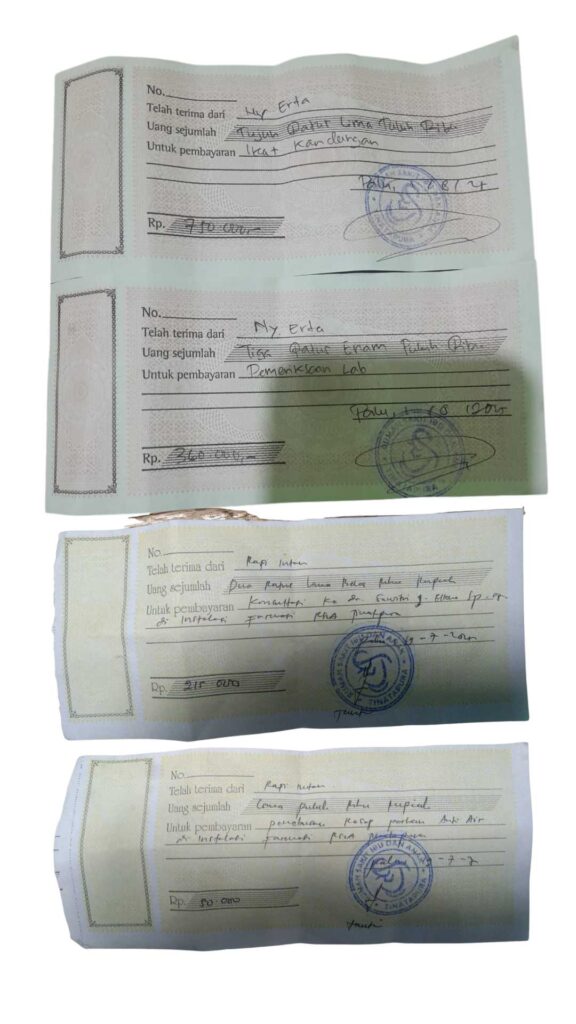 No.
Telah terima dari Ny Erta
Uang sejumlah Tujuh Ratus Lima Puluh Ribu
Untuk pembayaran Ikat Kandungan
Palu,
Rp. 750.000,-
No.
Telah terima dari Ny Erta
Uang sejumlah Tiga Ratus Enam Puluh Ribu
Untuk pembayaran Pemeriksaan Lab
Palu,
Rp. 360.000,-
No.
Telah terima dari Rapi Intan
Uang sejumlah Dua Ratus Lima Belas Ribu Rupiah
Untuk pembayaran Konsultasi Ke dr.
di Instalasi Farmasi RSIA Tinatapura
RUMAH SAKIT IBU DAN ANAK
TINATAPURA
Rp. 215.000
No.
Telah terima dari Rapi Intan
Uang sejumlah Lima puluh Ribu Rupiah
Untuk pembayaran penebusan Kasap perban Anti Air
di Instalasi Farmasi RSIA
SAKIT IBU DAN ANAK
TINATAPURA
Rp. 50.000